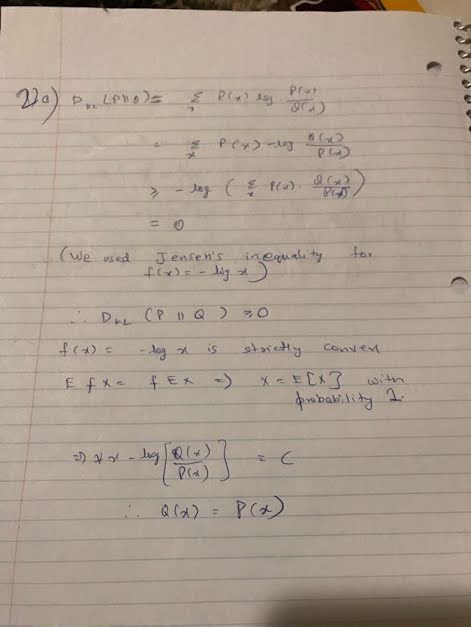 2) a) D_KL (P||Q) = Σ_x P(x) log P(x)/Q(x)
= Σ_x P(x) -log Q(x)/P(x)
≥ -log ( Σ_x P(x) · Q(x)/P(x) )
= 0
(We used Jensen's inequality for
f(x) = -log x )
∴ D_KL (P || Q ) ≥ 0
f(x) = -log x is strictly convex
E f X = f E X ⇒ X = E[X] with
probability 1.
⇒ ∀ x -log [ Q(x)/P(x) ] = C
∴ Q(x) = P(x)